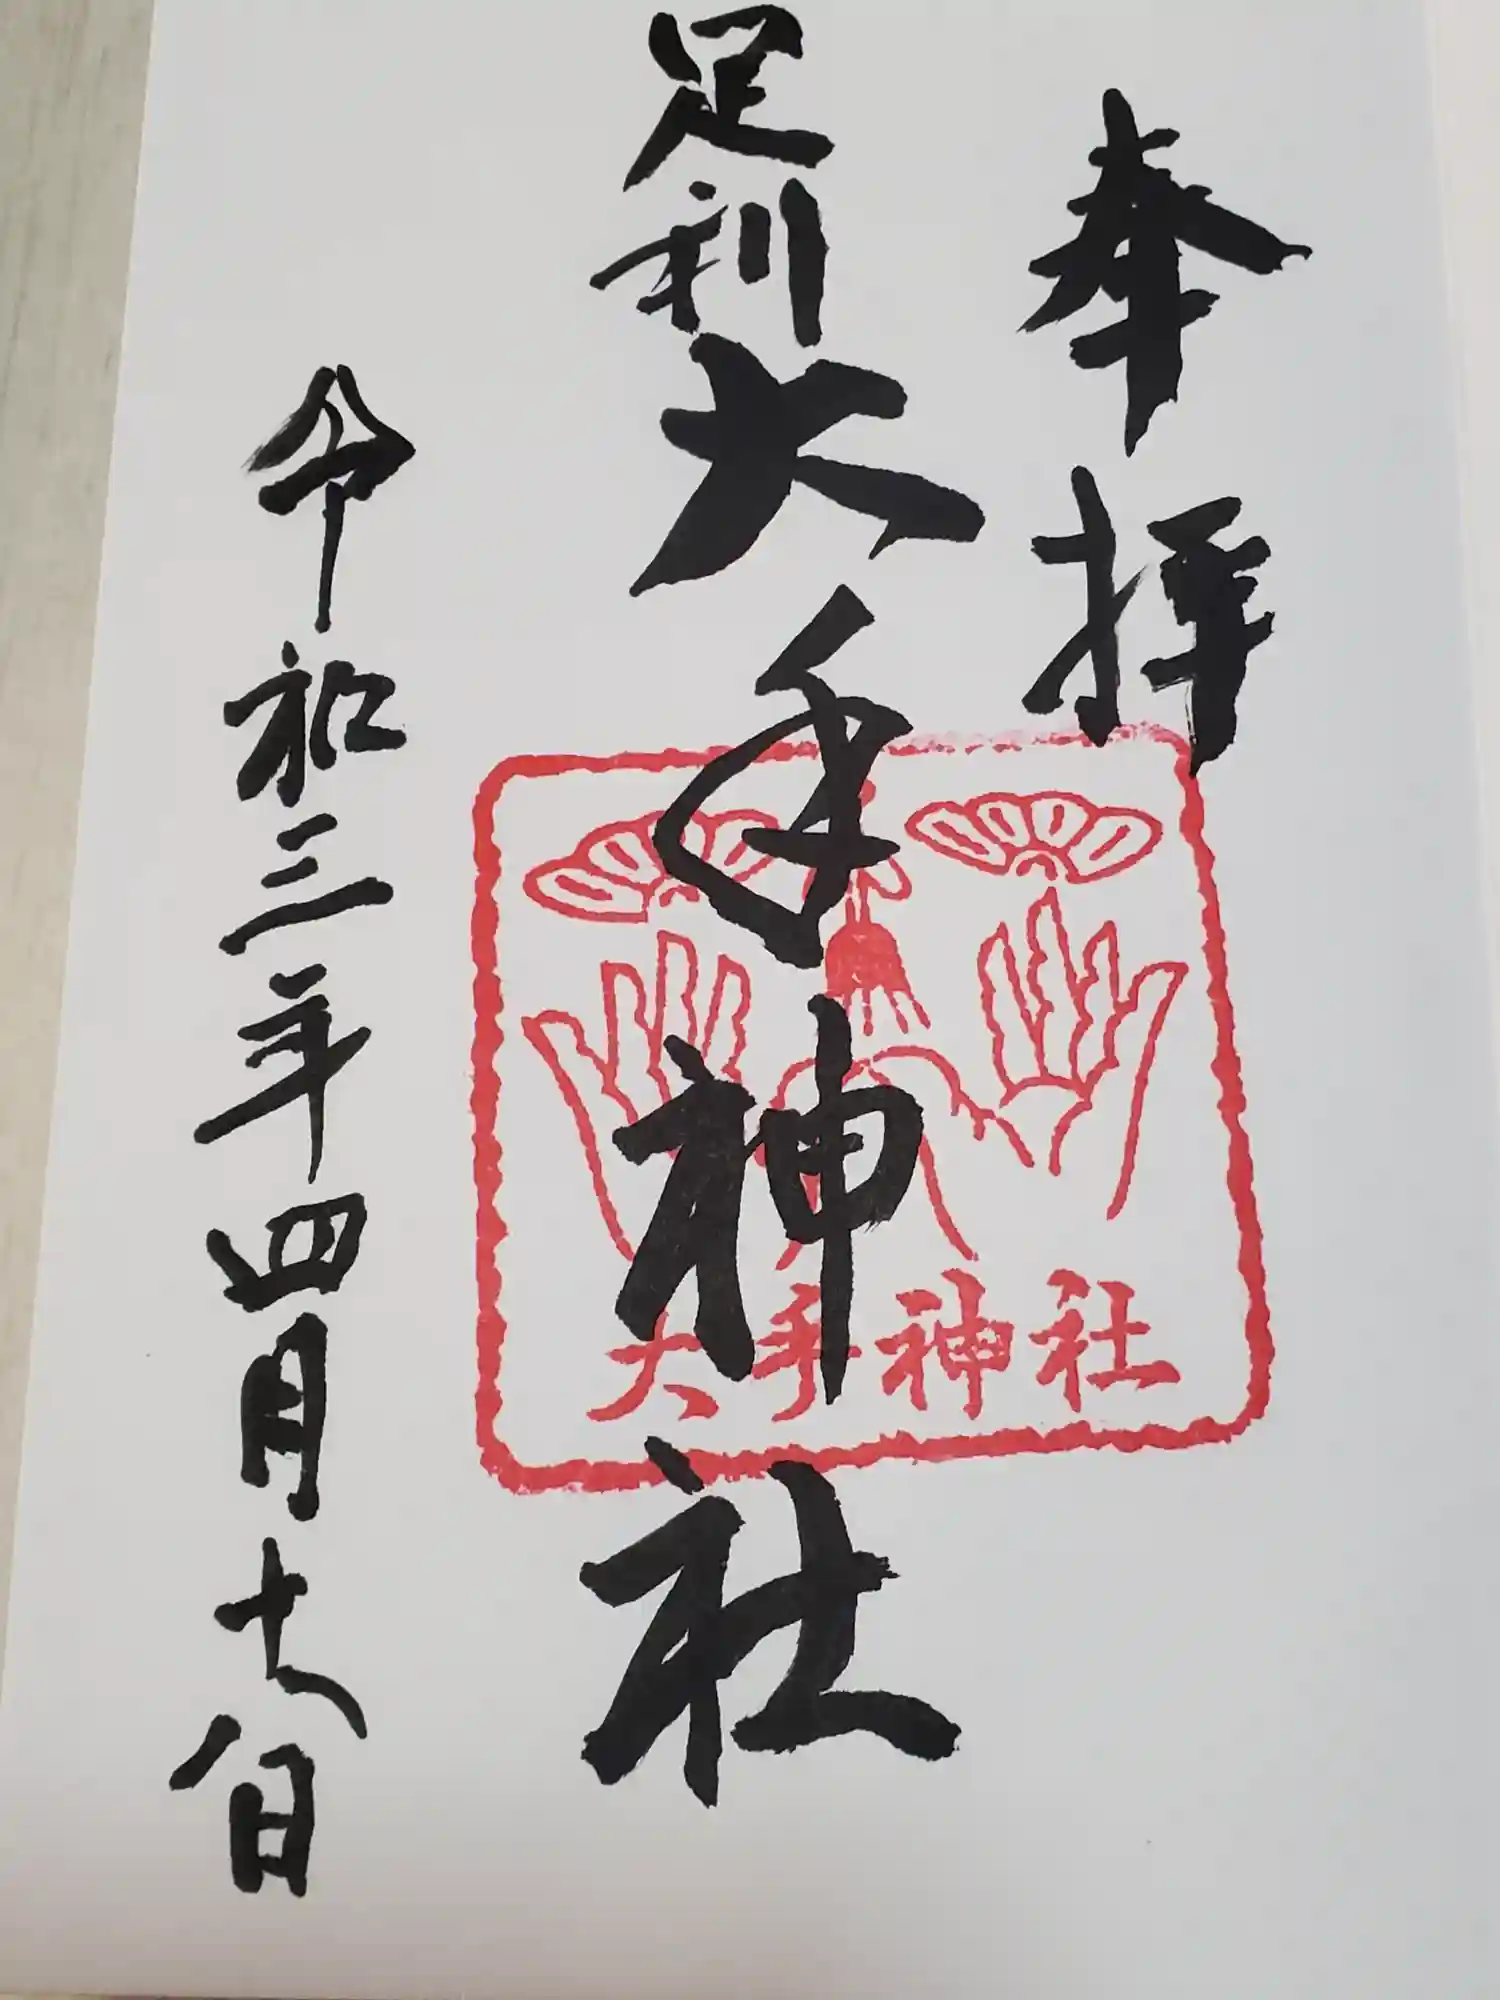 奉拝
足利大手神社
大手神社
令和三年四月十八日